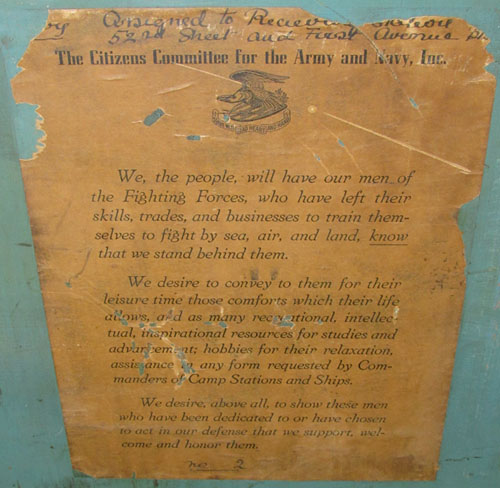 Assigned to Recieving Station
52nd Street and First Avenue
The Citizens Committee for the Army and Navy, Inc.
We, the people, will have our men of
the Fighting Forces, who have left their
skills, trades, and businesses to train them-
selves to fight by sea, air, and land, know
that we stand behind them.
We desire to convey to them for their
leisure time those comforts which their life
allows, and as many recreational, intellec-
tual, inspirational resources for studies and
advancement; hobbies for their relaxation,
assistance in any form requested by Com-
manders of Camp Stations and Ships.
We desire, above all, to show these men
who have been dedicated to or have chosen
to act in our defense that we support, wel-
come and honor them.
no 2